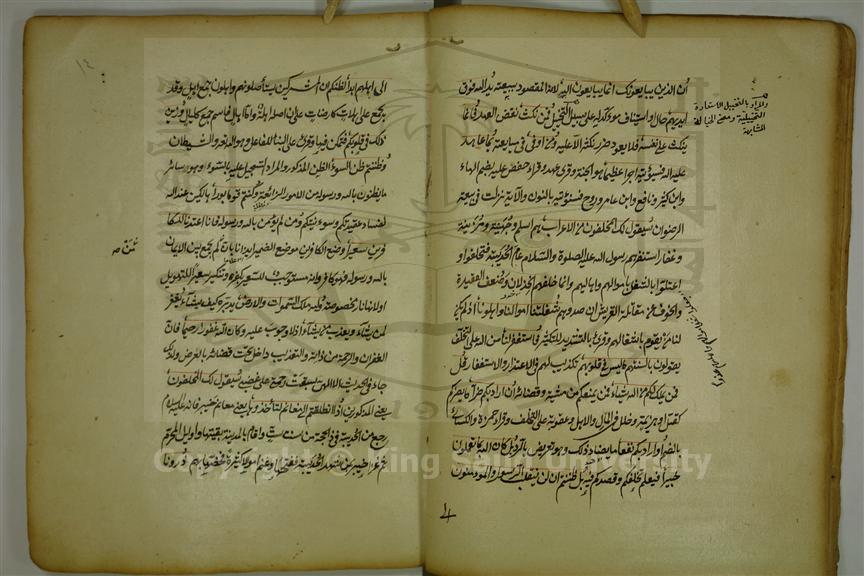 ان الذين يبايعونك انما يبايعون الله لانه المقصود ببيعته يد الله فوق
ايديهم حال او استيناف مؤكد له على سبيل التخييل فمن نكث نقض العهد فانما
ينكث على نفسه فلا يعود ضرر نكثه الا عليه ومن اوفى في مبايعته بما عاهد
عليه الله فسيؤتيه اجرا عظيما هو الجنة وقرئ عهد وقراء حفص عليه بضم الهاء
وابن كثير ونافع وابن عامر وروح فسنؤتيه بالنون والآية نزلت في بيعة
الرضوان سيقول لك المخلفون من الاعراب هم اسلم وجهينة ومزينة
وغفار استنفرهم رسول الله عليه الصلوة والسلام عام الحديبية فتخلفوا و
اعتلوا بالشغل باموالهم واهاليهم وانما خلفهم الخذلان وضعف العقيدة
والخوف من مقاتلة القريش ان صدوهم شغلتنا اموالنا واهلونا اذ لم يكن
لنا من يقوم باشغالهم وقرئ بالتشديد للتكثير فاستغفر لنا من الله على التخلف
يقولون بالسنتهم ما ليس في قلوبهم تكذيب لهم في الاعتذار والاستغفار قل
فمن يملك لكم من الله شيئا فمن يمنعكم من مشيته وقضائه ان اراد بكم ضرا ما يضركم
كقتل وهزيمة وخلل في المال والاهل وعقوبة على التخلف وقرأ حمزة والكسائي
بالضم او اراد بكم نفعا ما يضاد ذلك وهو تعريض بالرد بل كان الله بما تعملون
خبيرا فيعلم تخلفكم وقصدكم فيه بل ظننتم ان لن ينقلب الرسول والمؤمنون
والمراد بالتخييل الاستعارة
التخييلية ومعنى
المشابهة
الى اهليهم ابدا لظنكم ان المشركين يستأصلونهم واهلون جمع اهل وقد
يجمع على اهلات كارضات على ان اصله اهلة واما اهال فاسم جمع كليال وزين
ذلك في قلوبكم فتمكن فيها وقرئ على البناء للفاعل وهو الله تعالى والشيطان
وظننتم ظن السوء الظن المذكور والمراد التسجيل عليه بالسوء او هو وسائر
ما يظنون بالله ورسوله من الامور الزائغة وكنتم قوما بورا هالكين عند الله
لفساد عقيدتكم وسوء نيتكم ومن لم يؤمن بالله ورسوله فانا اعتدنا للكا
فرين سعيرا وضع الكافرين موضع الضمير ايذانا بان من لم يجمع بين الايمان
بالله ورسوله فهو كافر وانه مستوجب للسعير بكفره وتنكير سعيرا للتهويل
او لانها نار مخصوصة ولله ملك السموات والارض يدبره كيف يشاء يغفر
لمن يشاء ويعذب من يشاء اذ لا وجوب عليه وكان الله غفورا رحيما فان
الغفران والرحمة من ذاته والتعذيب داخل تحت قضائه بالعرض ولذلك
جاء في الحديث الالهي سبقت رحمتي على غضبي سيقول لك المخلفون
يعني المذكورين اذا انطلقتم الى مغانم لتأخذوها يعني مغانم خيبر فانه عليه السلام
رجع من الحديبية في ذي الحجة من سنة ست واقام بالمدينة بقيتها واوايل المحرم
ثم غزا خيبر بمن شهد الحديبية ففتحها وغنم اموالا كثيرة فخصها بهم ذرونا
Copyright © King Saud University